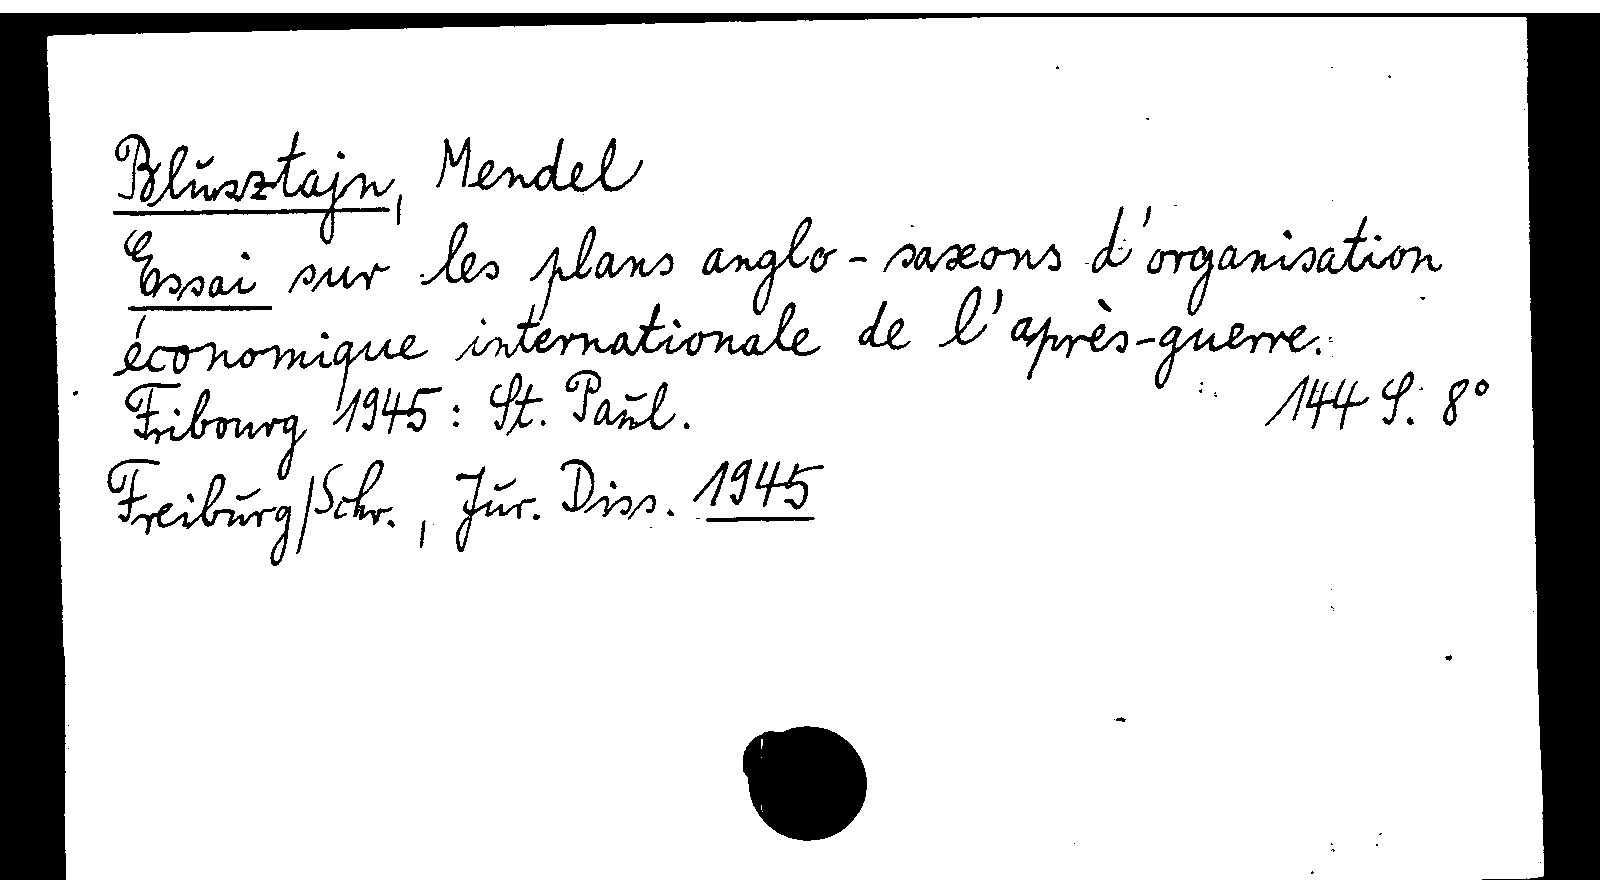 Blusztajn, Mendel
Essai sur les plans anglo-saxons d'organisation
économique internationale de l'après-guerre.
Fribourg 1945: St. Paul. 144 S. 8°
Freiburg/Schr., Jur. Diss. 1945